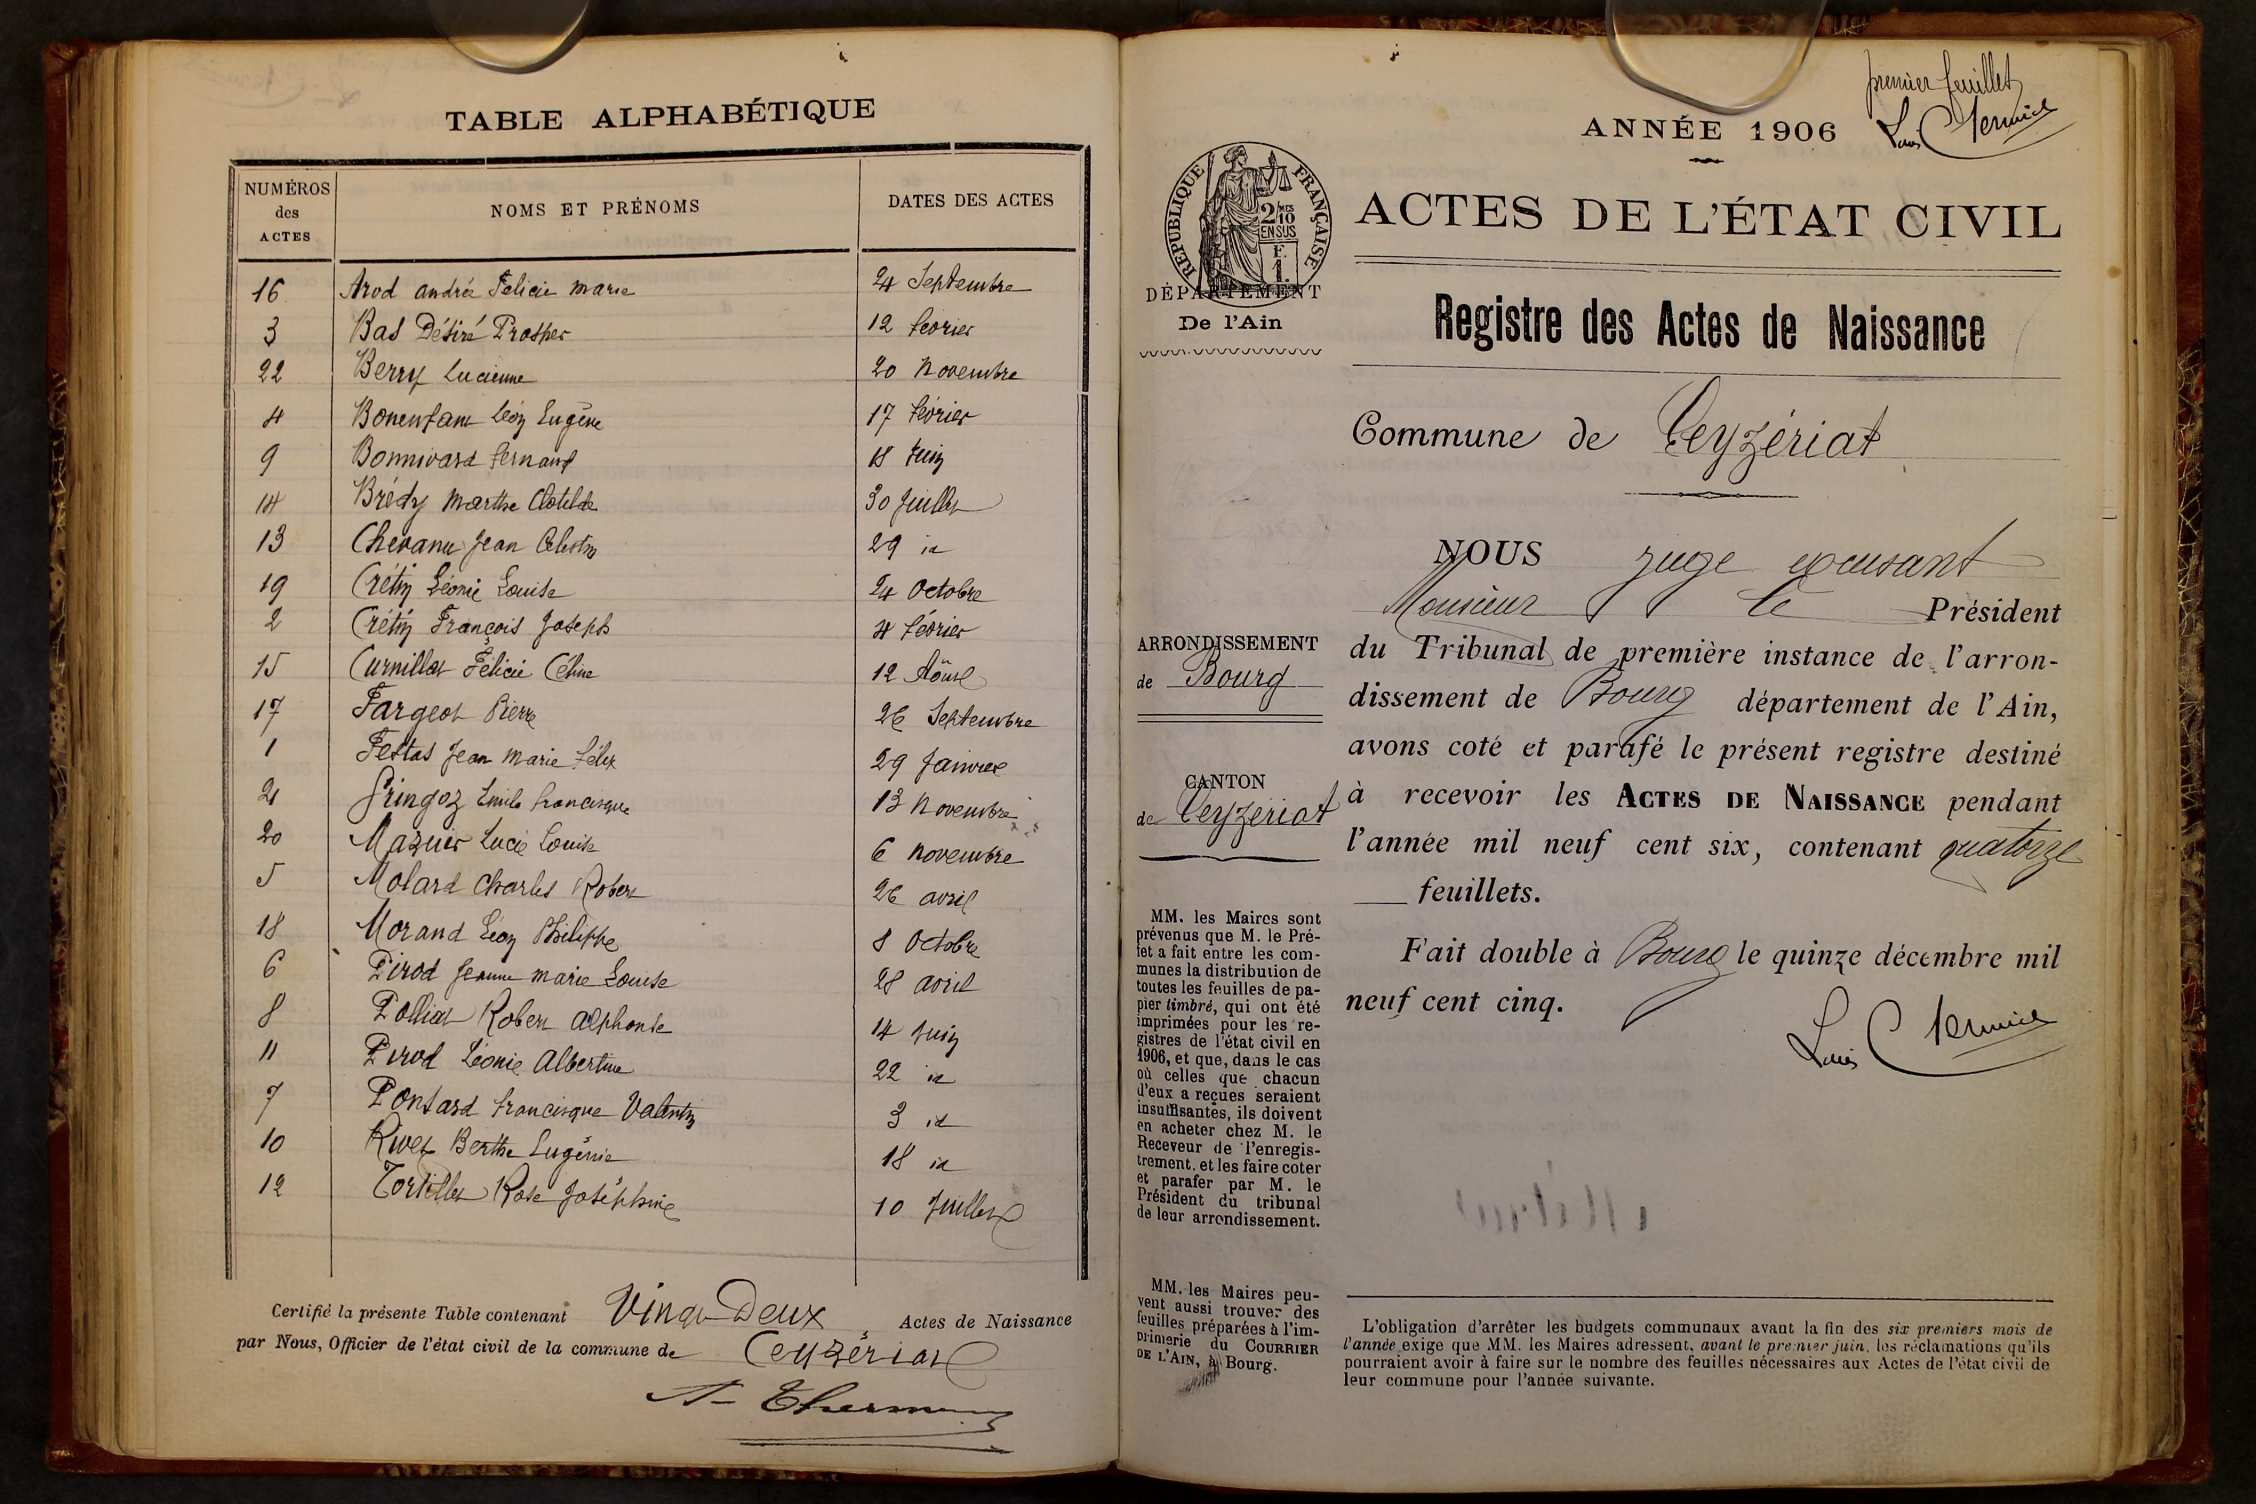 TABLE ALPHABÉTIQUE
NUMÉROS des ACTES
NOMS ET PRÉNOMS
DATES DES ACTES
16 Arod andrée Félicie marie 24 Septembre
3 Bas Désiré Prosper 12 février
22 Berry Lucienne 20 Novembre
4 Bonenfant Léon Eugène 17 février
9 Bonnivard fernand 18 Juin
14 Brédy Marthe Clotilde 30 Juillet
13 Chevanu Jean Célestin 29 id
19 Crétin Léonie Louise 24 Octobre
2 Crétin François Joseph 4 février
15 Curnillon Félicie Céline 12 Août
17 Fargeot Pierre 26 Septembre
1 Festas Jean Marie félix 29 Janvier
21 Gringoz Emile francisque 13 Novembre
20 Mazuir Lucie Louise 6 novembre
5 Molard Charles Robert 26 avril
18 Morand Léon Philippe 8 Octobre
6 Pirod Jeanne marie Louise 28 avril
8 Polliat Robert Alphonse 14 Juin
11 Pirod Léonie Albertine 22 id
7 Ponsard francisque Valentin 3 id
10 Rivet Berthe Eugénie 18 id
12 Tortillet Rose Joséphine 10 Juillet
Certifié la présente Table contenant Vingt Deux Actes de Naissance
par Nous, Officier de l'état civil de la commune de Ceyzériat
premier feuillet
Louis
ANNÉE 1906
RÉPUBLIQUE FRANÇAISE
2/10 EN SUS
F. 1.
ACTES DE L'ÉTAT CIVIL
DÉPARTEMENT
De l'Ain
Registre des Actes de Naissance
Commune de Ceyzériat
NOUS juge excusant
Monsieur le Président
ARRONDISSEMENT
de Bourg
du Tribunal de première instance de l'arron-
dissement de Bourg département de l'Ain,
avons coté et parafé le présent registre destiné
CANTON
de Ceyzériat
à recevoir les ACTES DE NAISSANCE pendant
l'année mil neuf cent six, contenant quatorze
feuillets.
Fait double à Bourg le quinze décembre mil
neuf cent cinq.
Louis
MM. les Maires sont
prévenus que M. le Pré-
fet a fait entre les com-
munes la distribution de
toutes les feuilles de pa-
pier timbré, qui ont été
imprimées pour les re-
gistres de l'état civil en
1906, et que, dans le cas
où celles que chacun
d'eux a reçues seraient
insuffisantes, ils doivent
en acheter chez M. le
Receveur de l'enregis-
trement, et les faire coter
et parafer par M. le
Président du tribunal
de leur arrondissement.
MM. les Maires peu-
vent aussi trouver des
feuilles préparées à l'im-
primerie du COURRIER
DE L'AIN, à Bourg.
L'obligation d'arrêter les budgets communaux avant la fin des six premiers mois de
l'année exige que MM. les Maires adressent, avant le premier juin, les réclamations qu'ils
pourraient avoir à faire sur le nombre des feuilles nécessaires aux Actes de l'état civil de
leur commune pour l'année suivante.